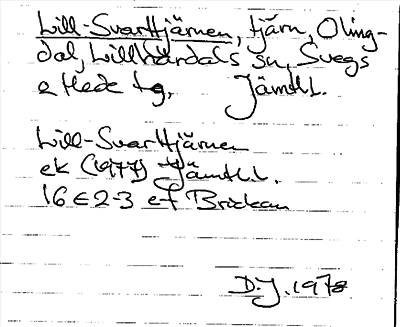 Lill-Svarttjärnen, tjärn, Oling-
dal, Lillhärdals sn, Svegs
o Hede tg. Jämtl l.
Lill-Svarttjärnen
ek (1977) Jämtl l.
16E 2-3 ef Brickan
D.J. 1978